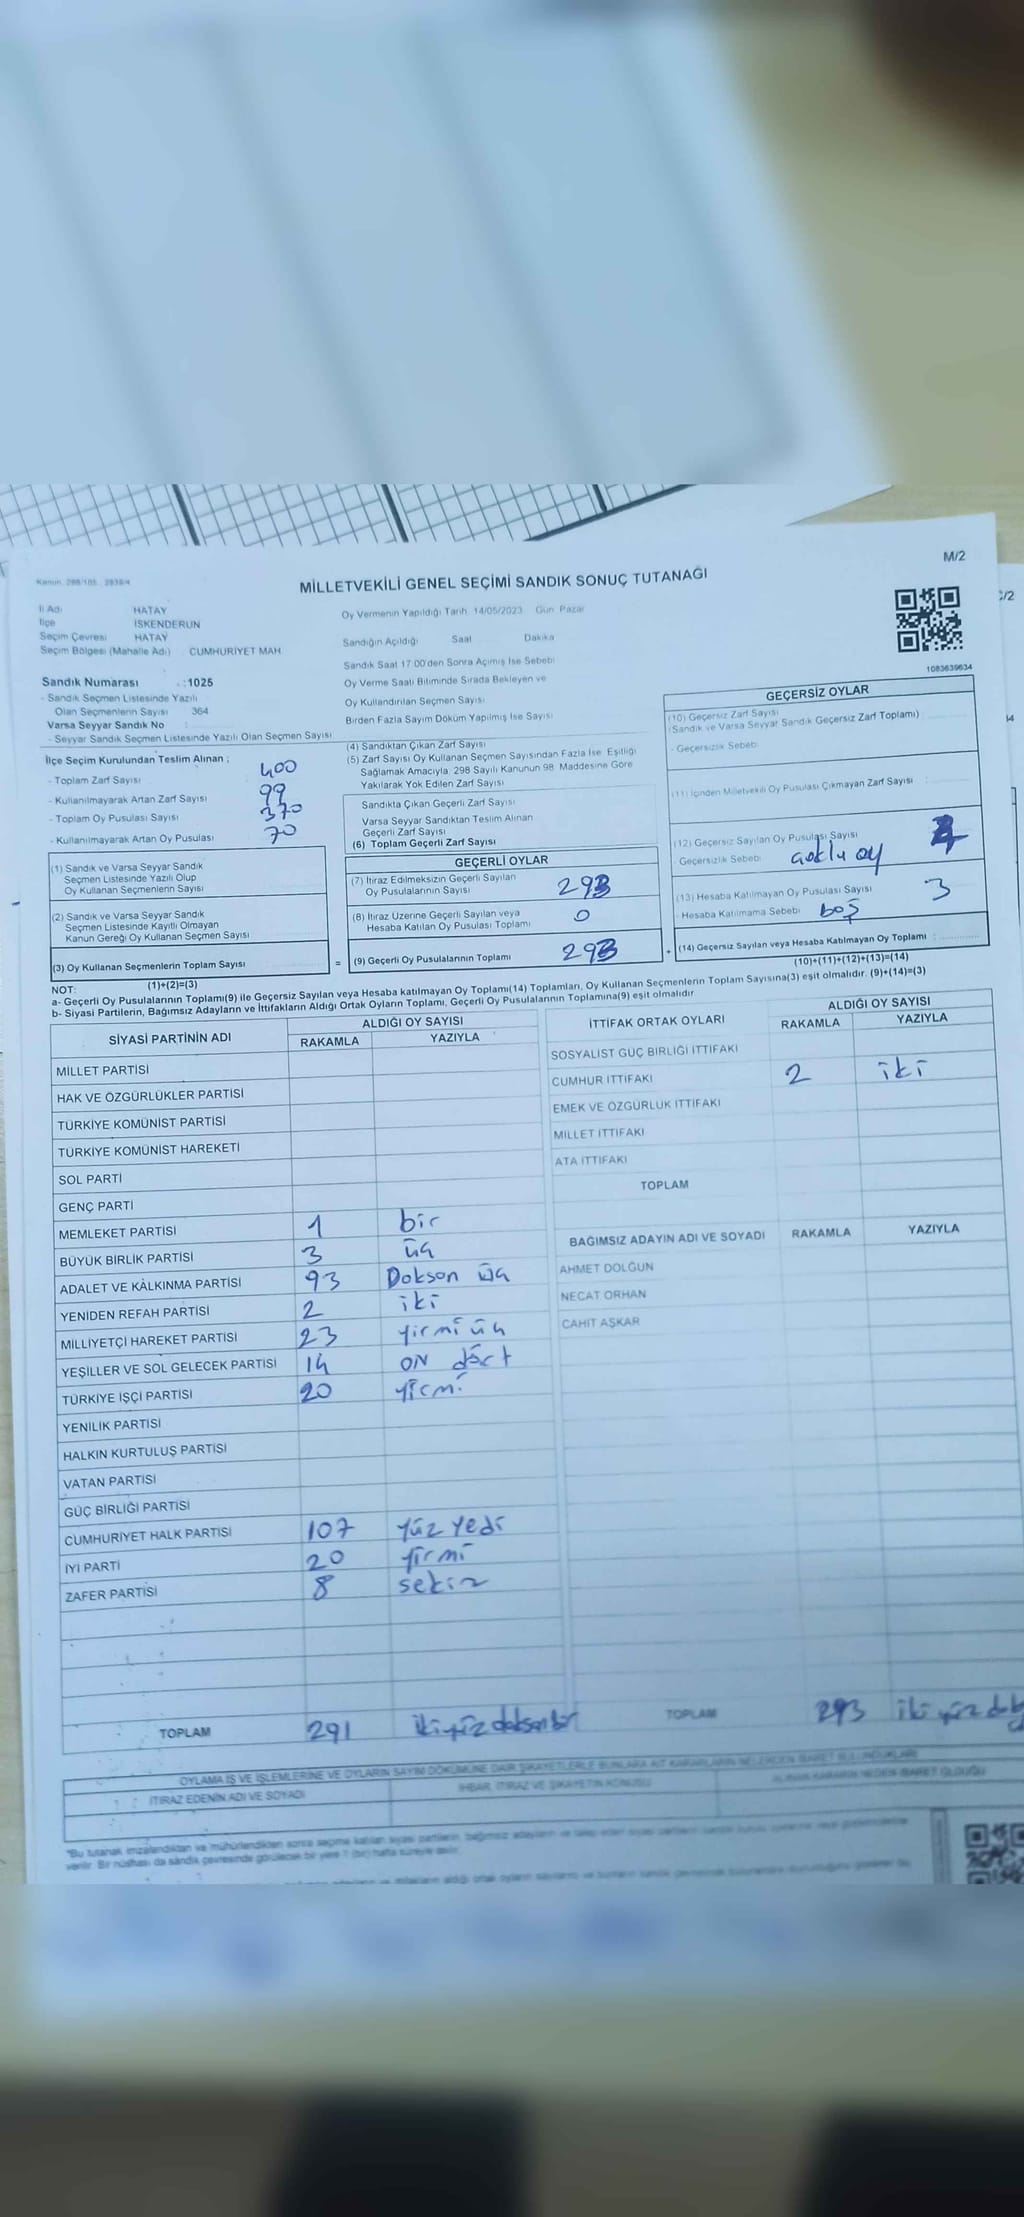 M/2
MİLLETVEKİLİ GENEL SEÇİMİ SANDIK SONUÇ TUTANAĞI
İl Adı HATAY
İlçe İSKENDERUN
Seçim Çevresi HATAY
Seçim Bölgesi (Mahalle Adı) CUMHURİYET MAH
Oy Vermenin Yapıldığı Tarih: 14/05/2023 Gün: Pazar
Sandığın Açıldığı Saat Dakika
Sandık Saat 17:00'den Sonra Açımış İse Sebebi
Oy Verme Saati Bitiminde Sırada Bekleyen ve
Oy Kullandırılan Seçmen Sayısı
Birden Fazla Sayım Döküm Yapılmış İse Sayısı
1083639634
Sandık Numarası : 1025
- Sandık Seçmen Listesinde Yazılı
Olan Seçmenlerin Sayısı 364
Varsa Seyyar Sandık No
- Seyyar Sandık Seçmen Listesinde Yazılı Olan Seçmen Sayısı
İlçe Seçim Kurulundan Teslim Alınan ;
- Toplam Zarf Sayısı 400
- Kullanılmayarak Artan Zarf Sayısı 99
- Toplam Oy Pusulası Sayısı 370
- Kullanılmayarak Artan Oy Pusulası 70
(1) Sandık ve Varsa Seyyar Sandık
Seçmen Listesinde Yazılı Olup
Oy Kullanan Seçmenlerin Sayısı
(2) Sandık ve Varsa Seyyar Sandık
Seçmen Listesinde Kayıtlı Olmayan
Kanun Gereği Oy Kullanan Seçmen Sayısı
(3) Oy Kullanan Seçmenlerin Toplam Sayısı
(1)+(2)=(3)
(4) Sandıktan Çıkan Zarf Sayısı
(5) Zarf Sayısı Oy Kullanan Seçmen Sayısından Fazla İse Eşitliği
Sağlamak Amacıyla 298 Sayılı Kanunun 98. Maddesine Göre
Yakılarak Yok Edilen Zarf Sayısı
Sandıkta Çıkan Geçerli Zarf Sayısı
Varsa Seyyar Sandıktan Teslim Alınan
Geçerli Zarf Sayısı
(6) Toplam Geçerli Zarf Sayısı
GEÇERLİ OYLAR
(7) İtiraz Edilmeksizin Geçerli Sayılan
Oy Pusulalarının Sayısı 293
(8) İtiraz Üzerine Geçerli Sayılan veya
Hesaba Katılan Oy Pusulası Toplamı 0
= (9) Geçerli Oy Pusulalarının Toplamı 293 +
GEÇERSİZ OYLAR
(10) Geçersiz Zarf Sayısı
(Sandık ve Varsa Seyyar Sandık Geçersiz Zarf Toplamı)
- Geçersizlik Sebebi
(11) İçinden Milletvekili Oy Pusulası Çıkmayan Zarf Sayısı
(12) Geçersiz Sayılan Oy Pusulası Sayısı
- Geçersizlik Sebebi çoklu oy
(13) Hesaba Katılmayan Oy Pusulası Sayısı 3
- Hesaba Katılmama Sebebi boş
(14) Geçersiz Sayılan veya Hesaba Katılmayan Oy Toplamı
(10)+(11)+(12)+(13)=(14)
NOT:
a- Geçerli Oy Pusulalarının Toplamı(9) ile Geçersiz Sayılan veya Hesaba katılmayan Oy Toplamı(14) Toplamları, Oy Kullanan Seçmenlerin Toplam Sayısına(3) eşit olmalıdır. (9)+(14)=(3)
b- Siyasi Partilerin, Bağımsız Adayların ve İttifakların Aldığı Ortak Oyların Toplamı, Geçerli Oy Pusulalarının Toplamına(9) eşit olmalıdır
SİYASİ PARTİNİN ADI ALDIĞI OY SAYISI
RAKAMLA YAZIYLA
MİLLET PARTİSİ
HAK VE ÖZGÜRLÜKLER PARTİSİ
TÜRKİYE KOMÜNİST PARTİSİ
TÜRKİYE KOMÜNİST HAREKETİ
SOL PARTİ
GENÇ PARTİ
MEMLEKET PARTİSİ 1 bir
BÜYÜK BİRLİK PARTİSİ 3 üç
ADALET VE KALKINMA PARTİSİ 93 Dokson üç
YENİDEN REFAH PARTİSİ 2 iki
MİLLİYETÇİ HAREKET PARTİSİ 23 yirmi üç
YEŞİLLER VE SOL GELECEK PARTİSİ 14 ON dört
TÜRKİYE İŞÇİ PARTİSİ 20 yirmi
YENİLİK PARTİSİ
HALKIN KURTULUŞ PARTİSİ
VATAN PARTİSİ
GÜÇ BİRLİĞİ PARTİSİ
CUMHURİYET HALK PARTİSİ 107 Yüz Yedi
İYİ PARTİ 20 Yirmi
ZAFER PARTİSİ 8 sekiz
TOPLAM 291 iki yüz doksan bir
İTTİFAK ORTAK OYLARI ALDIĞI OY SAYISI
RAKAMLA YAZIYLA
SOSYALİST GÜÇ BİRLİĞİ İTTİFAKI
CUMHUR İTTİFAKI 2 iki
EMEK VE ÖZGÜRLÜK İTTİFAKI
MİLLET İTTİFAKI
ATA İTTİFAKI
TOPLAM
BAĞIMSIZ ADAYIN ADI VE SOYADI RAKAMLA YAZIYLA
AHMET DOLGUN
NECAT ORHAN
CAHİT AŞKAR
TOPLAM 293 iki yüz
OYLAMA İŞ VE İŞLEMLERİNE VE OYLARIN SAYIM DÖKÜMÜNE DAİR ŞİKAYETLERLE BUNLARA AİT KARARLARIN NELERDEN İBARET BULUNDUKLARI
İTİRAZ EDENİN ADI VE SOYADI İHBAR, İTİRAZ VE ŞİKAYETİN KONUSU